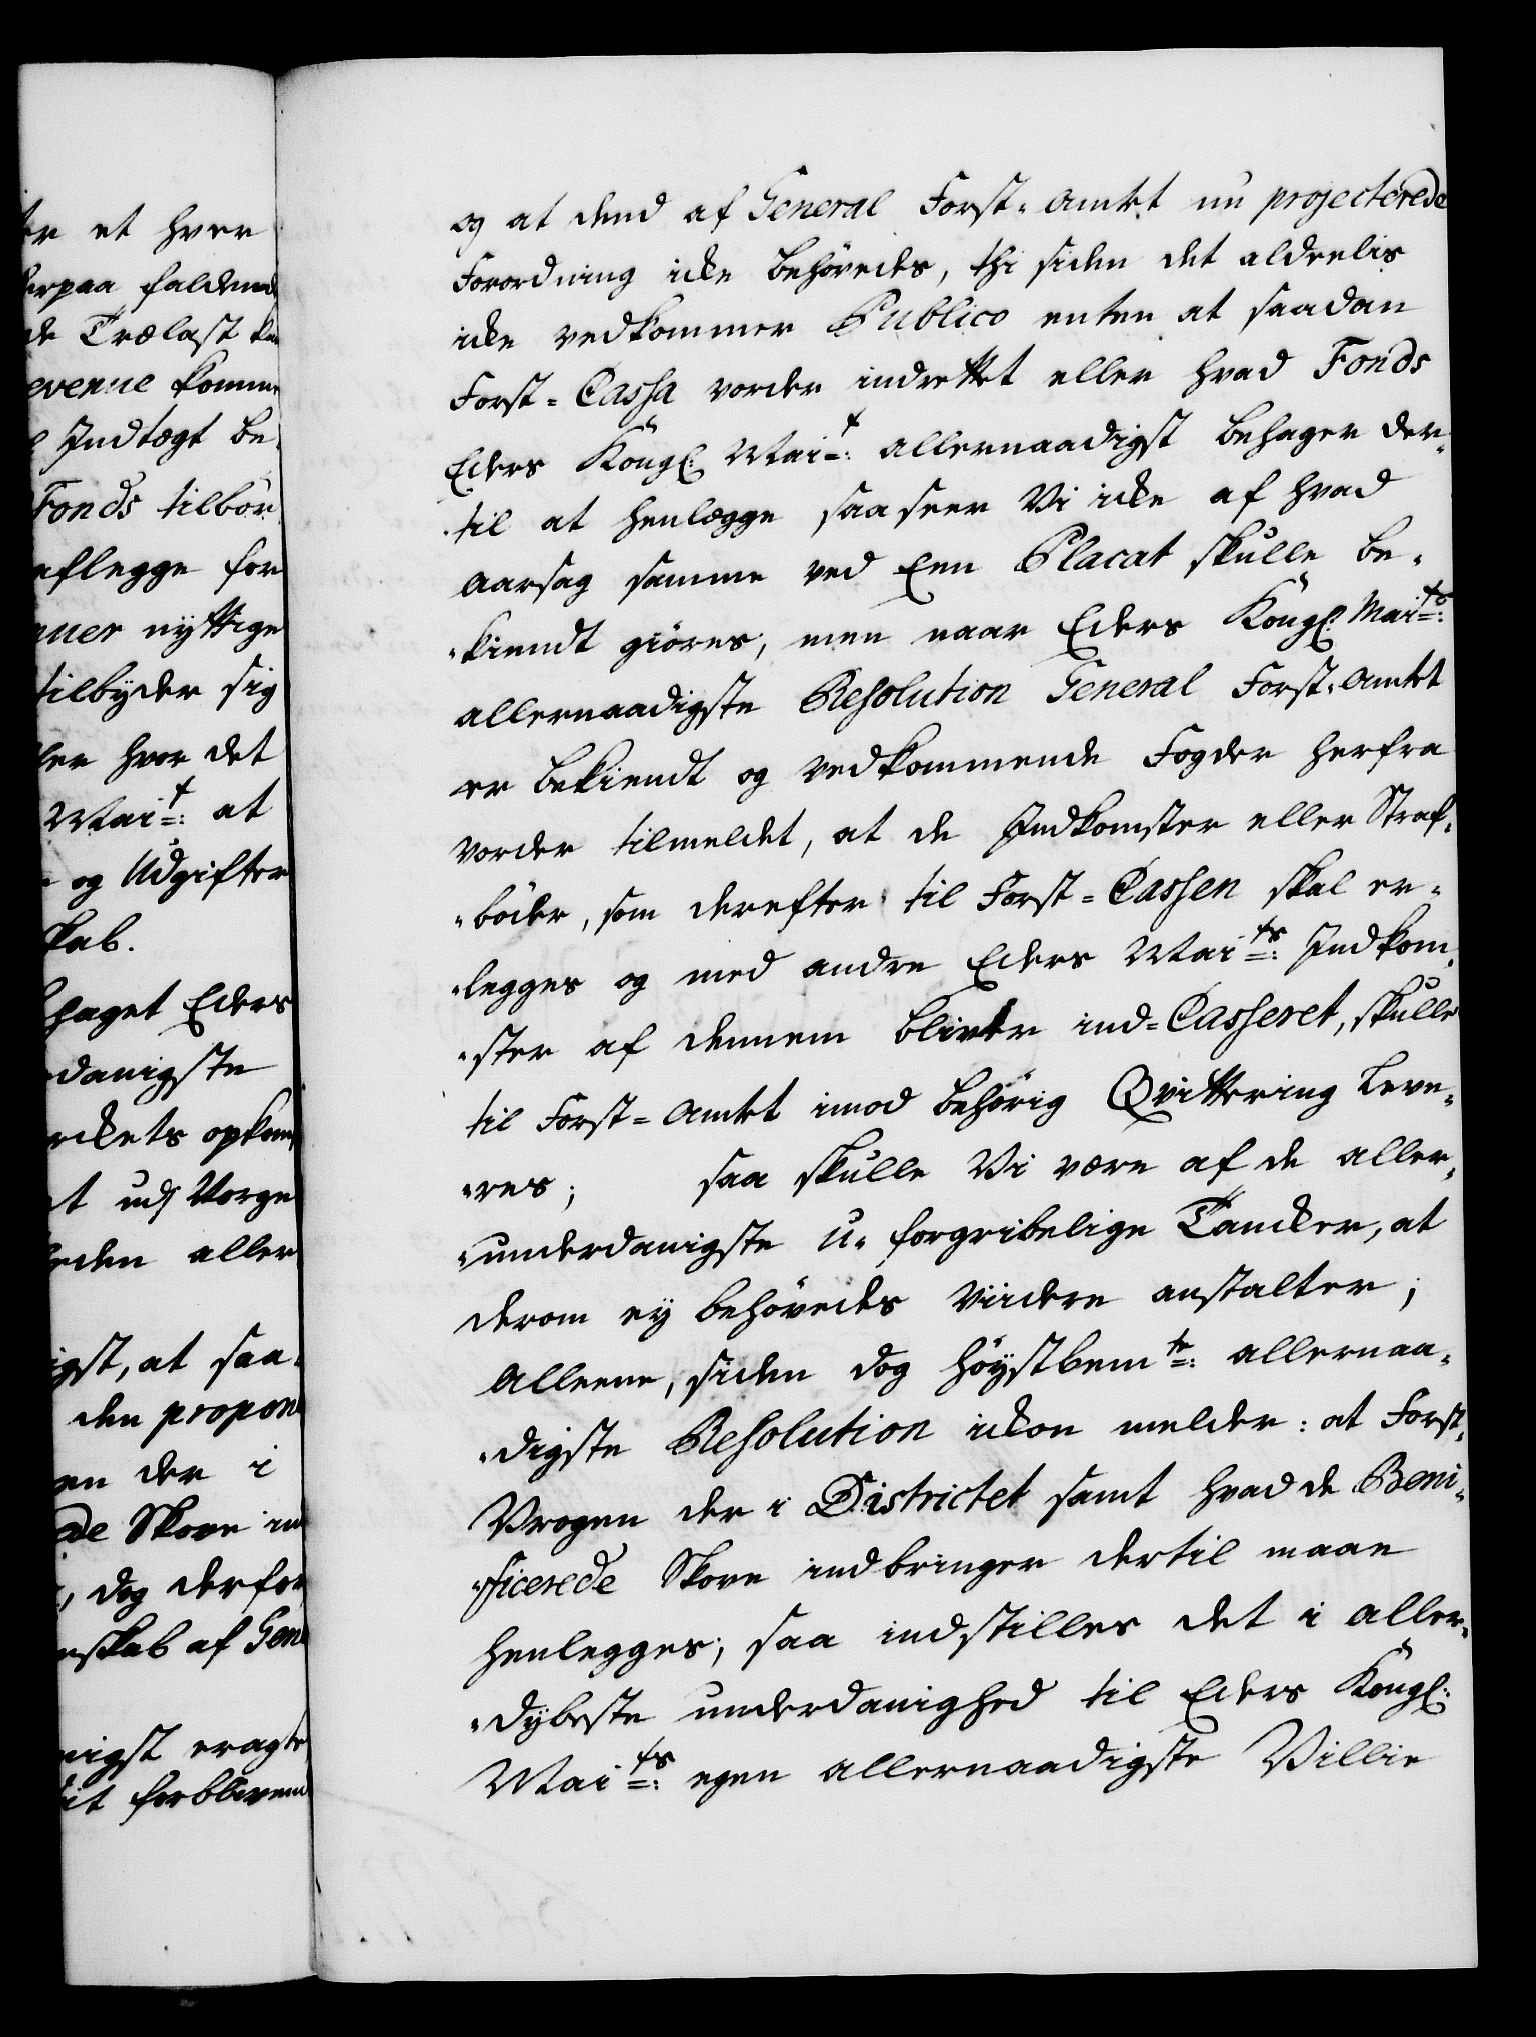 tr et hver
erpaa faldend
de Trælast ka
evenue komme
Indtægt be-
Fonds tilbör
aflegge for
nuer nÿttige
tilbÿder sig
ler hvor det
Mai:t at
og Udgifter
kab.
haget Eders
danigste
rckets opkom
t udj Norge
heden aller
igst, at saa-
den propon
en der i
ede Skove in
, dog derfor
nskab af Gen
nigst eragte
it forblivend
og at dend af General Forst-Amtet nu projecterede
Forordning icke behövedes, thi siden det aldeelis
icke vedkommer Publico enten at saadan
Forst-Cassa vorder indrettet eller hvad Fonds
Eders Kongl: Mai:t allernaadigst behager der-
til at henlægge saa seer Vi icke af hvad
aarsag samme ved Een Placat skulle be-
-kiendt giöres, men naar Eders Kongl: Mai:ts
allernaadigste Resolution General Forst-Amtet
er bekiendt og vedkommende Fogder herfra
vorder tilmeldet, at de Indkomster eller Straf-
-böder, som derefter til Forst-Cassen skal er-
-legges og med andre Eders Mai:ts Indkom-
-ster af dennem bliver ind-Casseret, skulle
til Forst-Amtet imod behörig Qvittering leve-
-res; saa skulle Vi være af de aller-
-underdanigste u-forgribelige Tancker, at
derom eÿ behövedes viidere anstalter;
Alleene, siden dog höÿstbem:te allernaa-
-digste Resolution ickon melder: at Forst-
Vrogen der i Districtet samt hvad de Beni-
-ficerede Skove indbringer dertil maae
henlegges; saa indstilles det i aller-
-dÿbeste underdanighed til Eders Kongl:
Mai:ts egen allernaadigste Villie